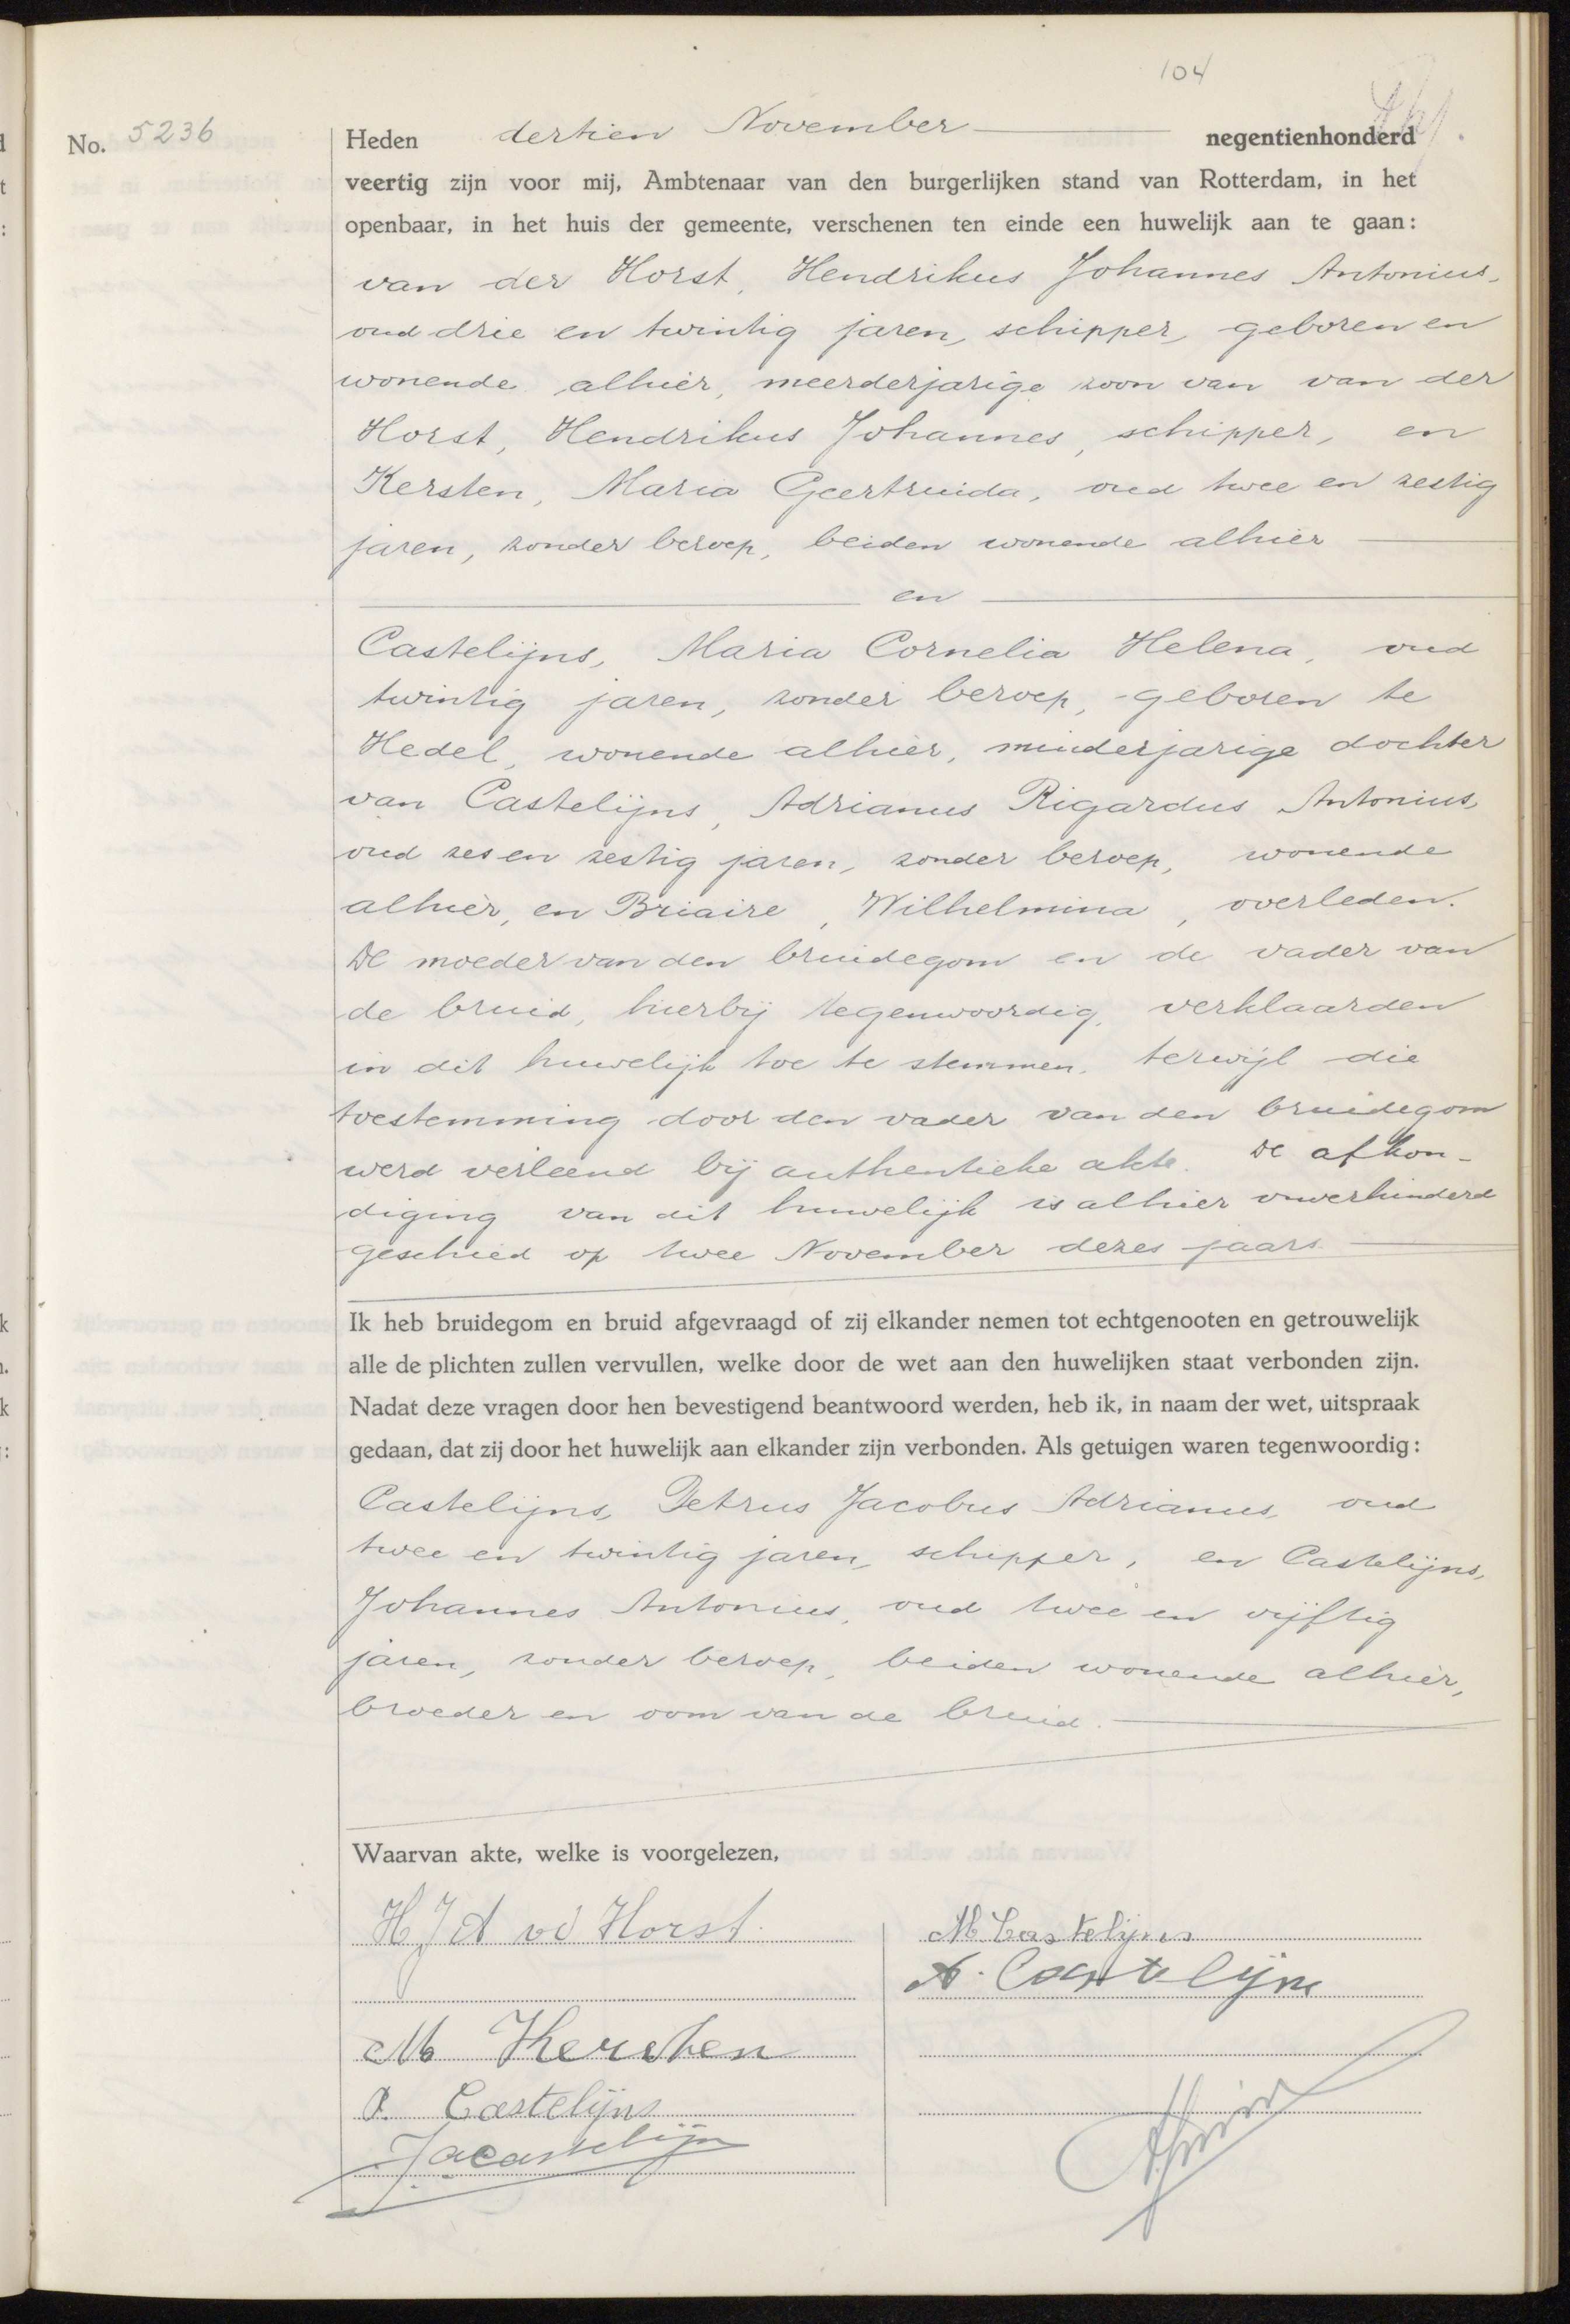 104
No. 5236
Heden dertien November negentienhonderd
veertig zijn voor mij, Ambtenaar van den burgerlijken stand van Rotterdam, in het
openbaar, in het huis der gemeente, verschenen ten einde een huwelijk aan te gaan:
van der Horst, Hendrikus Johannes Antonius,
oud drie en twintig jaren, schipper, geboren en
wonende alhier, meerderjarige zoon van van der
Horst, Hendrikus Johannes, schipper, en
Kersten, Maria Geertruida, oud twee en zestig
jaren, zonder beroep, beiden wonende alhier
en
Castelijns, Maria Cornelia Helena, oud
twintig jaren, zonder beroep, geboren te
Hedel, wonende alhier, minderjarige dochter
van Castelijns, Adrianus Rigardus Antonius,
oud zes en zestig jaren, zonder beroep, wonende
alhier, en Briaire, Wilhelmina, overleden.
De moeder van den bruidegom en de vader van
de bruid, hierbij tegenwoordig, verklaarden
in dit huwelijk toe te stemmen, terwijl die
toestemming door den vader van den bruidegom
werd verleend bij authentieke akte. De afkon-
diging van dit huwelijk is alhier onverhinderd
geschied op twee November dezes jaars
Ik heb bruidegom en bruid afgevraagd of zij elkander nemen tot echtgenooten en getrouwelijk
alle de plichten zullen vervullen, welke door de wet aan den huwelijken staat verbonden zijn.
Nadat deze vragen door hen bevestigend beantwoord werden, heb ik, in naam der wet, uitspraak
gedaan, dat zij door het huwelijk aan elkander zijn verbonden. Als getuigen waren tegenwoordig:
Castelijns, Petrus Jacobus Adrianus, oud
twee en twintig jaren, schipper, en Castelijns,
Johannes Antonius, oud twee en vijftig
jaren, zonder beroep, beiden wonende alhier,
broeder en oom van de bruid.
Waarvan akte, welke is voorgelezen,
H J A vd Horst.
M Castelijns
A. Castelijns
M Kersten
P. Castelijns
J a castelijn